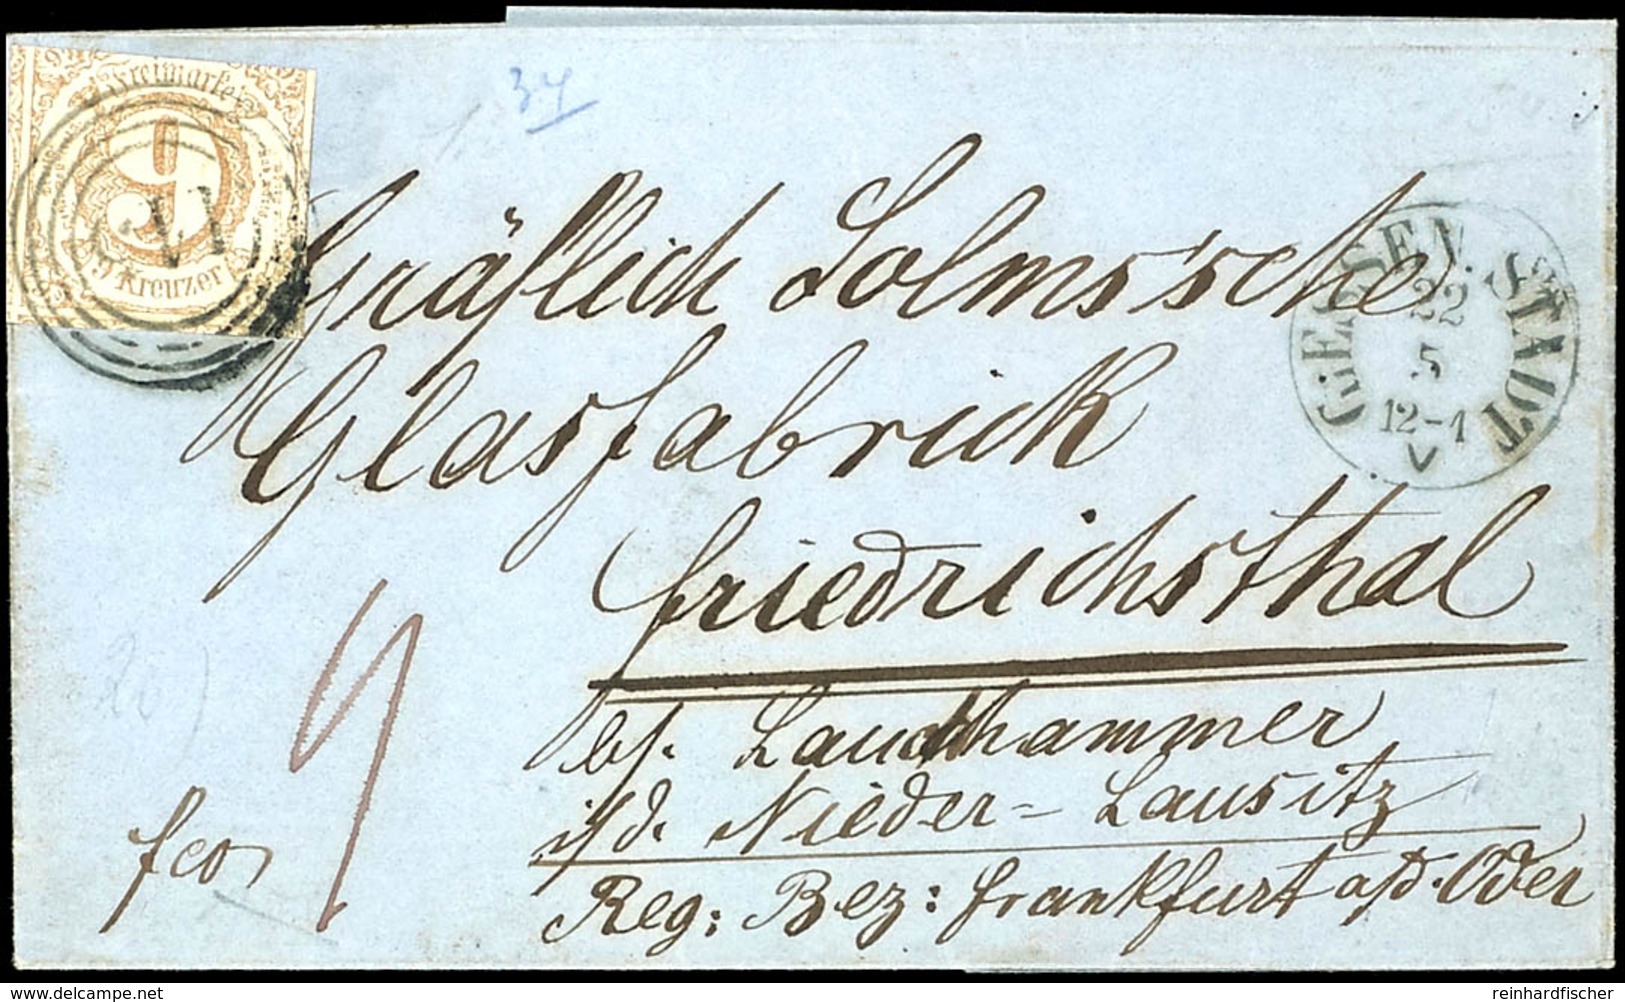 Freimarke
9
9 Kreuzer
34
GIESSEN. STADT
22
5
12-1
V
Gräflich Solms'sche
Glasfabrick
Friedrichsthal
bf. Lauchhammer
i/d. Nieder-Lausitz
Reg: Bez: Frankfurt a/d. Oder
fco
9
www.delcampe.net
reinhardfischer